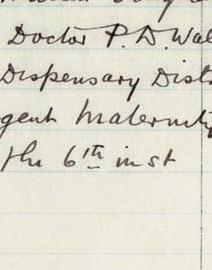 Doctor P. D. Wal
Dispensary Dist
gent Maternity
the 6th inst